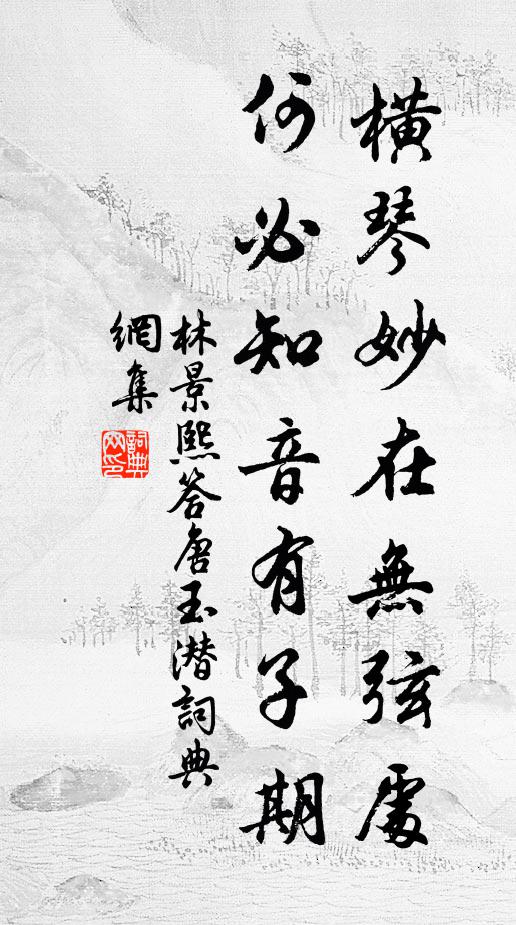 橫琴妙在無弦處
何必知音有子期
林景熙答唐玉潛詞典
網集
詞典網印